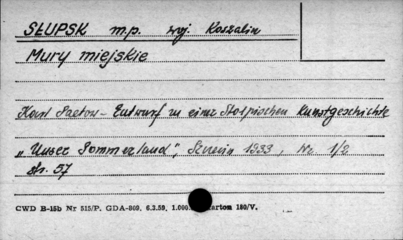 SŁUPSK m.p. woj. Koszalin
Mury miejskie
Karl Paetow - Entwurf zu einer Stolpischen Kunstgeschichte
„Unser Pommerland", Szczecin 1933, Nr. 1/2
str. 57
CWD B-15b Nr 515/P. GDA-809. 6.3.59. 1.000. Karton 180/V.